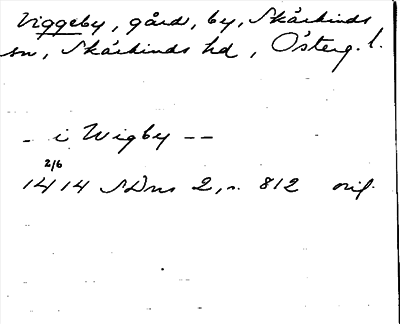 Viggeby, gård, by, Skärkinds
sn, Skärkinds hd, Österg. l.
- i Wigby --
2/6
1414 SDns 2, s. 812 orig.